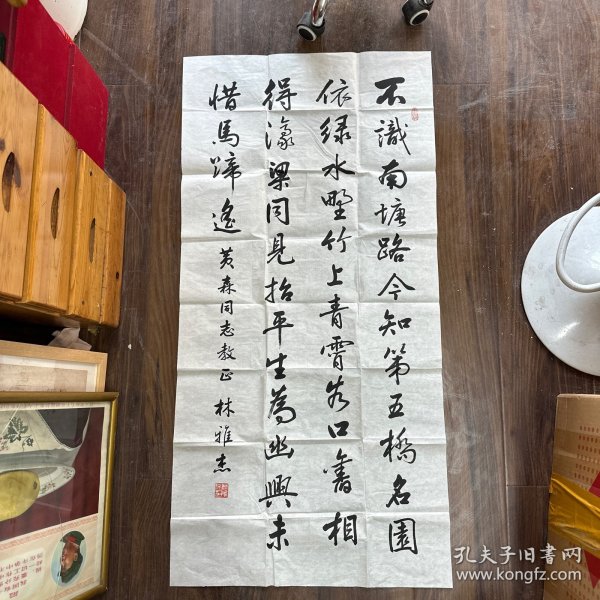 不識南塘路今知第五橋名園
依绿水野竹上青霄谷口舊相
得濠梁同見招平生為幽興未
惜馬蹄遙 黄森同志教正 林雅杰
孔夫子旧书网
www.kongfz.com